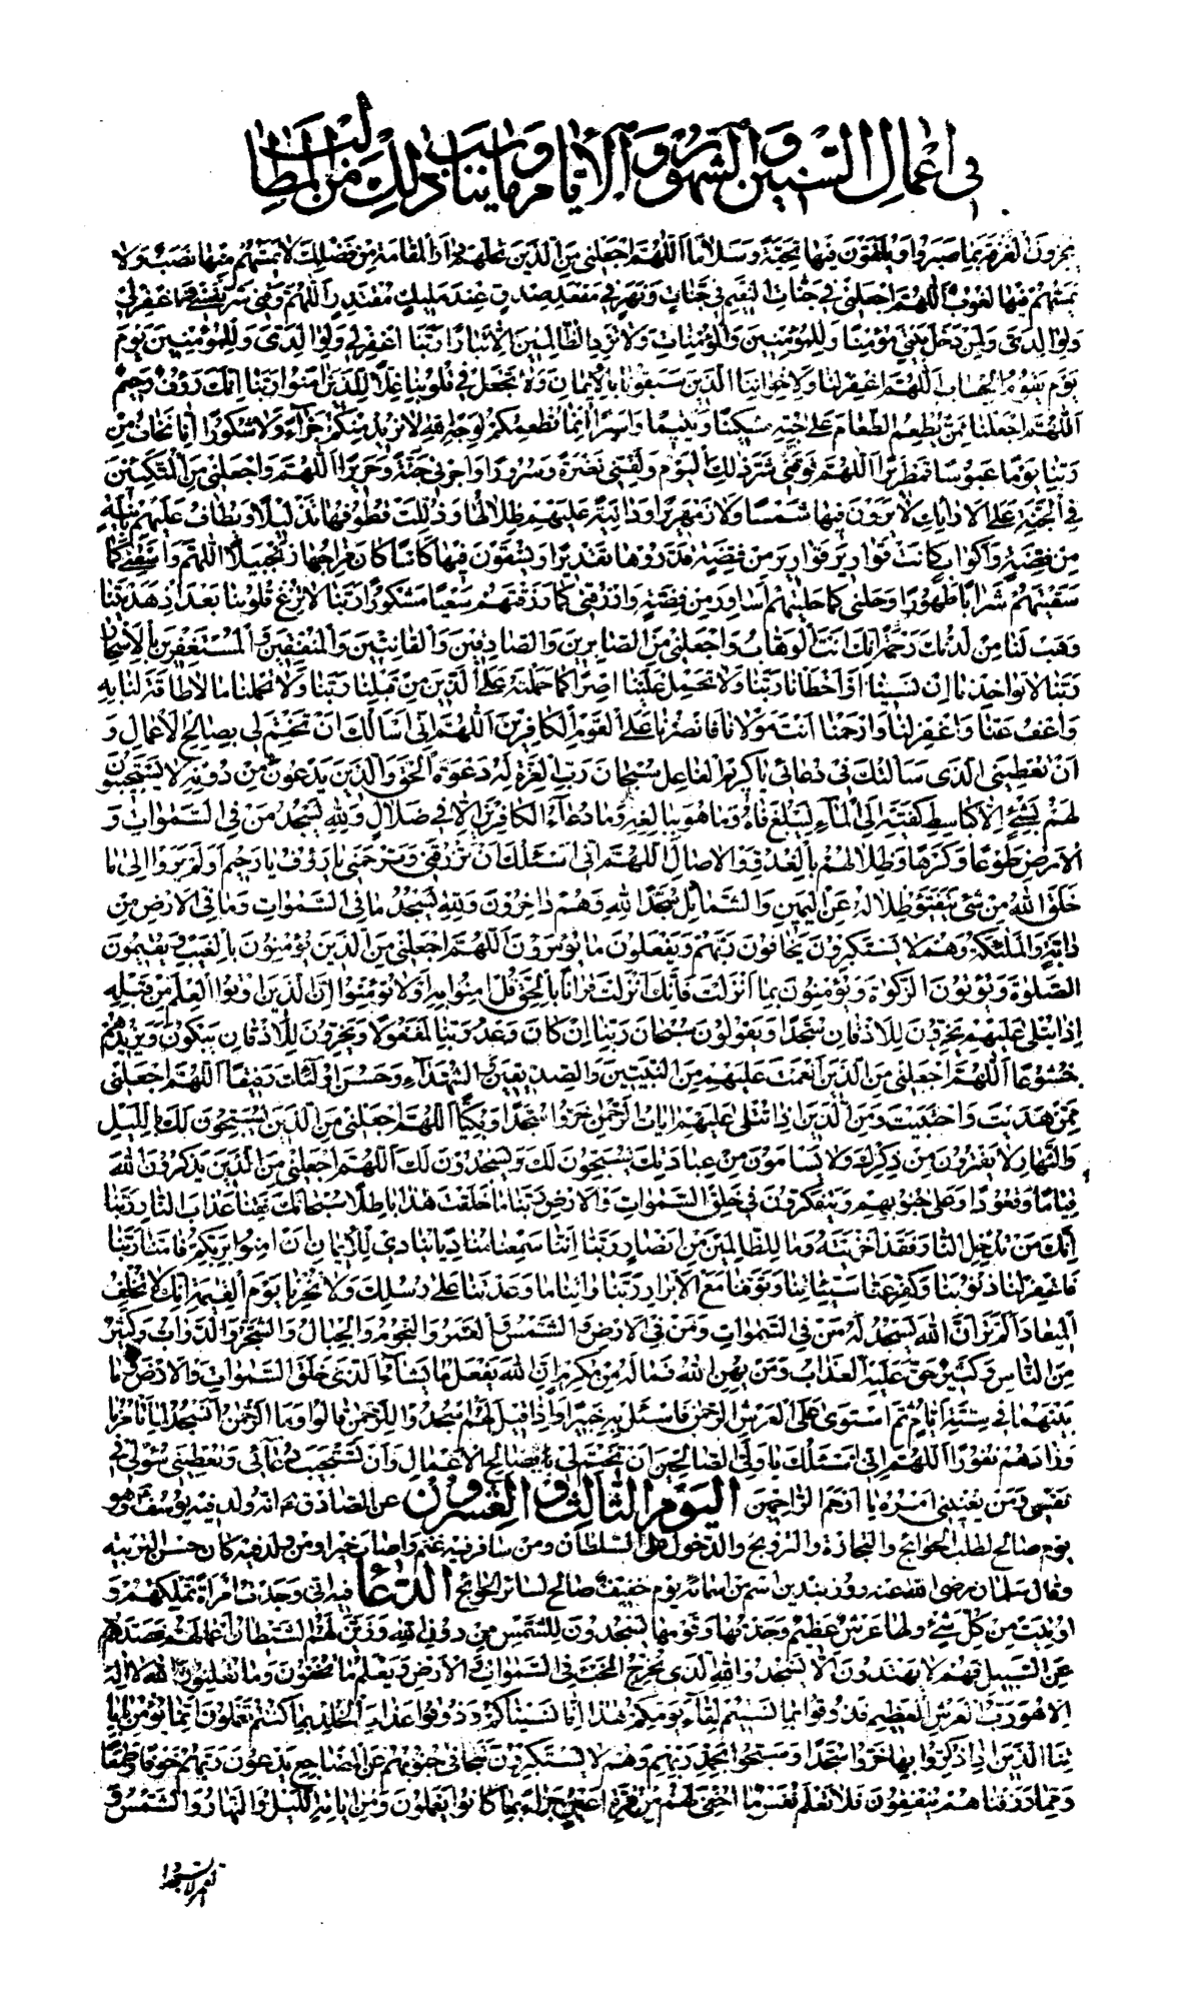 في اعمال السنين والشهور والايام وما يناسب ذلك من المطالب
يجزون الغرفة بما صبروا ويلقون فيها تحية وسلاما اللهم اجعلني من الذين تحلهم في دار المقامة من فضلك لا تمسهم فيها نصب ولا
تمسهم فيها لغوب اللهم اجعلني في جنات النعيم في جنات ونهر في مقعد صدق عند مليك مقتدر اللهم وقني شر نفسي واغفر لي
ولوالدي ولمن دخل بيتي مؤمنا وللمؤمنين والمؤمنات ولا تزد الظالمين الا تبارا ربنا اغفر لي ولوالدي وللمؤمنين يوم
يوم يقوم الحساب اللهم اغفر لنا ولاخواننا الذين سبقونا بالايمان ولا تجعل في قلوبنا غلا للذين امنوا ربنا انك رؤف رحيم
اللهم اجعلنا ممن يطعم الطعام على حبه مسكينا ويتيما واسيرا انما نطعمكم لوجه الله لا نريد منكم جزآء ولا شكورا انا نخاف من
ربنا يوما عبوسا قمطريرا اللهم فوقني شر ذلك اليوم ولقني نضرة وسرورا واجزني جنة وحريرا اللهم واجعلني من المتكئين
في الجنة على الارائك لا يرون فيها شمسا ولا زمهريرا ودانية عليهم ظلالها وذللت قطوفها تذليلا ويطاف عليهم بانية
من فضة واكواب كانت قوارير قوارير من فضة قدروها تقديرا ويسقون فيها كاسا كان مزاجها زنجبيلا اللهم واسقني كما
سقيتهم شرابا طهورا وحلني كما حليتهم اساور من فضة وارزقني كما رزقتهم سعيا مشكورا ربنا لا تزغ قلوبنا بعد اذ هديتنا
وهب لنا من لدنك رحمة انك انت الوهاب واجعلني من الصابرين والصادقين والقانتين والمنفقين والمستغفرين بالاسحار
ربنا لا تؤاخذنا ان نسينا او اخطانا ربنا ولا تحمل علينا اصرا كما حملته على الذين من قبلنا ربنا ولا تحملنا ما لا طاقة لنا به
واعف عنا واغفر لنا وارحمنا انت مولانا فانصرنا على القوم الكافرين اللهم اني اسالك ان تختم لي بصالح الاعمال و
ان تعطيني الذي سالتك في دعائي يا كريم الفاعل سبحان رب العزة له دعوة الحق والذين يدعون من دونه لا يستجيبون
لهم بشئ الا كباسط كفيه الى المآء ليبلغ فاه وما هو ببالغه وما دعآء الكافرين الا في ضلال ولله يسجد من في السموات و
الارض طوعا وكرها وظلالهم بالغدو والاصال اللهم اني اسئلك ان ترزقني وترحمني يا رؤف يا رحيم اولم يروا الى ما
خلق الله من شئ يتفيؤ ظلاله عن اليمين والشمائل سجدا لله وهم داخرون ولله يسجد ما في السموات وما في الارض من
دابة والملئكة وهم لا يستكبرون يخافون ربهم ويفعلون ما يؤمرون اللهم اجعلني من الذين يؤمنون بالغيب ويقيمون
الصلوة ويؤتون الزكوة ويؤمنون بما انزلت فانك انزلت قرانا بالحق قل امنوا به او لا تؤمنوا ان الذين اوتوا العلم من قبله
اذا يتلى عليهم يخرون للاذقان سجدا ويقولون سبحان ربنا ان كان وعد ربنا لمفعولا ويخرون للاذقان يبكون ويزيدهم
خشوعا اللهم اجعلني من الذين انعمت عليهم من النبيين والصديقين والشهدآء وحسن اولئك رفيقا اللهم اجعلني
ممن هديت واجتبيت ومن الذين اذا تتلى عليهم ايات الرحمن خروا سجدا وبكيا اللهم اجعلني من الذين يسبحون لك بالليل
والنهار لا يفترون من ذكرك ولا يسامون من عبادتك يسبحون لك ويسجدون لك اللهم اجعلني من الذين يذكرون الله
قياما وقعودا وعلى جنوبهم ويتفكرون في خلق السموات والارض ربنا ما خلقت هذا باطلا سبحانك فقنا عذاب النار ربنا
انك من تدخل النار فقد اخزيته وما للظالمين من انصار ربنا اننا سمعنا مناديا ينادي للايمان ان امنوا بربكم فامنا ربنا
فاغفر لنا ذنوبنا وكفر عنا سيئاتنا وتوفنا مع الابرار ربنا واتنا ما وعدتنا على رسلك ولا تخزنا يوم القيمة انك لا تخلف
الميعاد الم تر ان الله يسجد له من في السموات ومن في الارض والشمس والقمر والنجوم والجبال والشجر والدواب وكثير
من الناس وكثير حق عليه العذاب ومن يهن الله فما له من مكرم ان الله يفعل ما يشآء الذي خلق السموات والارض وما
بينهما في ستة ايام ثم استوى على العرش الرحمن فاسئل به خبيرا واذا قيل لهم اسجدوا للرحمن قالوا وما الرحمن انسجد لما تامرنا
وزادهم نفورا اللهم اني اسئلك يا ولي الصالحين ان تختم لي بصالح الاعمال وان تستجيب دعآئي وتعطيني سؤلي في
نفسي ومن يعنيني امره يا ارحم الراحمين اليوم الثالث والعشرون عن الصادق ع انه ولد فيه يوسف ع وهو
يوم صالح لطلب الحوائج والتجارة والتزويج والدخول على السلطان ومن سافر فيه غنم واصاب خيرا ومن ولد فيه كان حسن التربية
وقال سلمان رضي الله عنه روز بنادين اسم من اسمائه يوم خفيف صالح لسائر الحوائج الدعا فيه اني وجدت امراة تملكهم و
اوتيت من كل شئ ولها عرش عظيم وجدتها وقومها يسجدون للشمس من دون الله وزين لهم الشيطان اعمالهم فصدهم
عن السبيل فهم لا يهتدون الا يسجدوا لله الذي يخرج الخبء في السموات والارض ويعلم ما تخفون وما تعلنون الله لا اله
الا هو رب العرش العظيم فذوقوا بما نسيتم لقآء يومكم هذا انا نسيناكم وذوقوا عذاب الخلد بما كنتم تعملون انما يؤمن بايا
تنا الذين اذا ذكروا بها خروا سجدا وسبحوا بحمد ربهم وهم لا يستكبرون تتجافى جنوبهم عن المضاجع يدعون ربهم خوفا وطمعا
ومما رزقناهم ينفقون فلا تعلم نفس ما اخفي لهم من قرة اعين جزاء بما كانوا يعملون ومن اياته الليل والنهار والشمس و
القمر لا تسجدوا